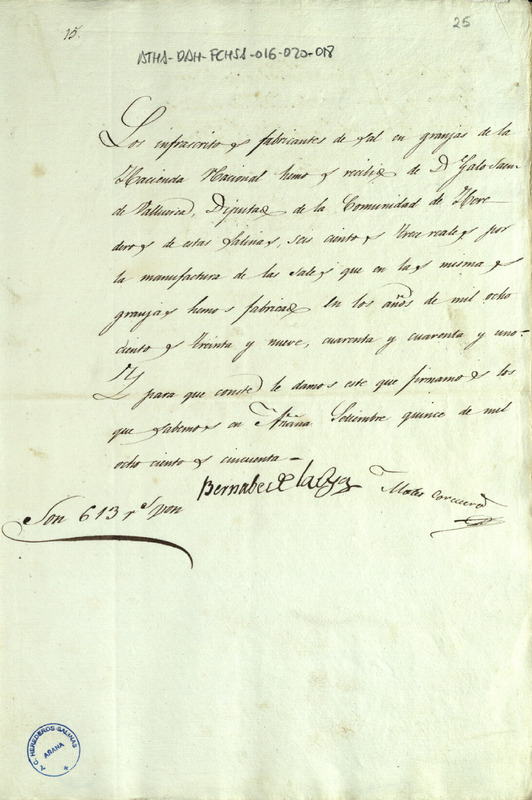 15.
25
ATHA-DAH-FCHSA-016-020-018
Los enfrascritos fabricantes de sal en granjas de la
Hacienda Nacional hemos recibido de D. Galo Saenz
de Valluerca, Diputado de la Comunidad de Here
deros de estas Salinas, seis cientos trece reales por
la manufactura de las sales que en las mismas
granjas hemos fabricado en los años de mil ocho
cientos treinta y nueve, cuarenta y cuarenta y uno=
Y para que conste le damos este que firmamos los
que sabemos en Añana Setiembre quince de mil
ocho cientos cincuenta=
Bernabe de
Mateo Corcuera
Son 613 rs von
C. HEREDEROS SALINAS
AÑANA